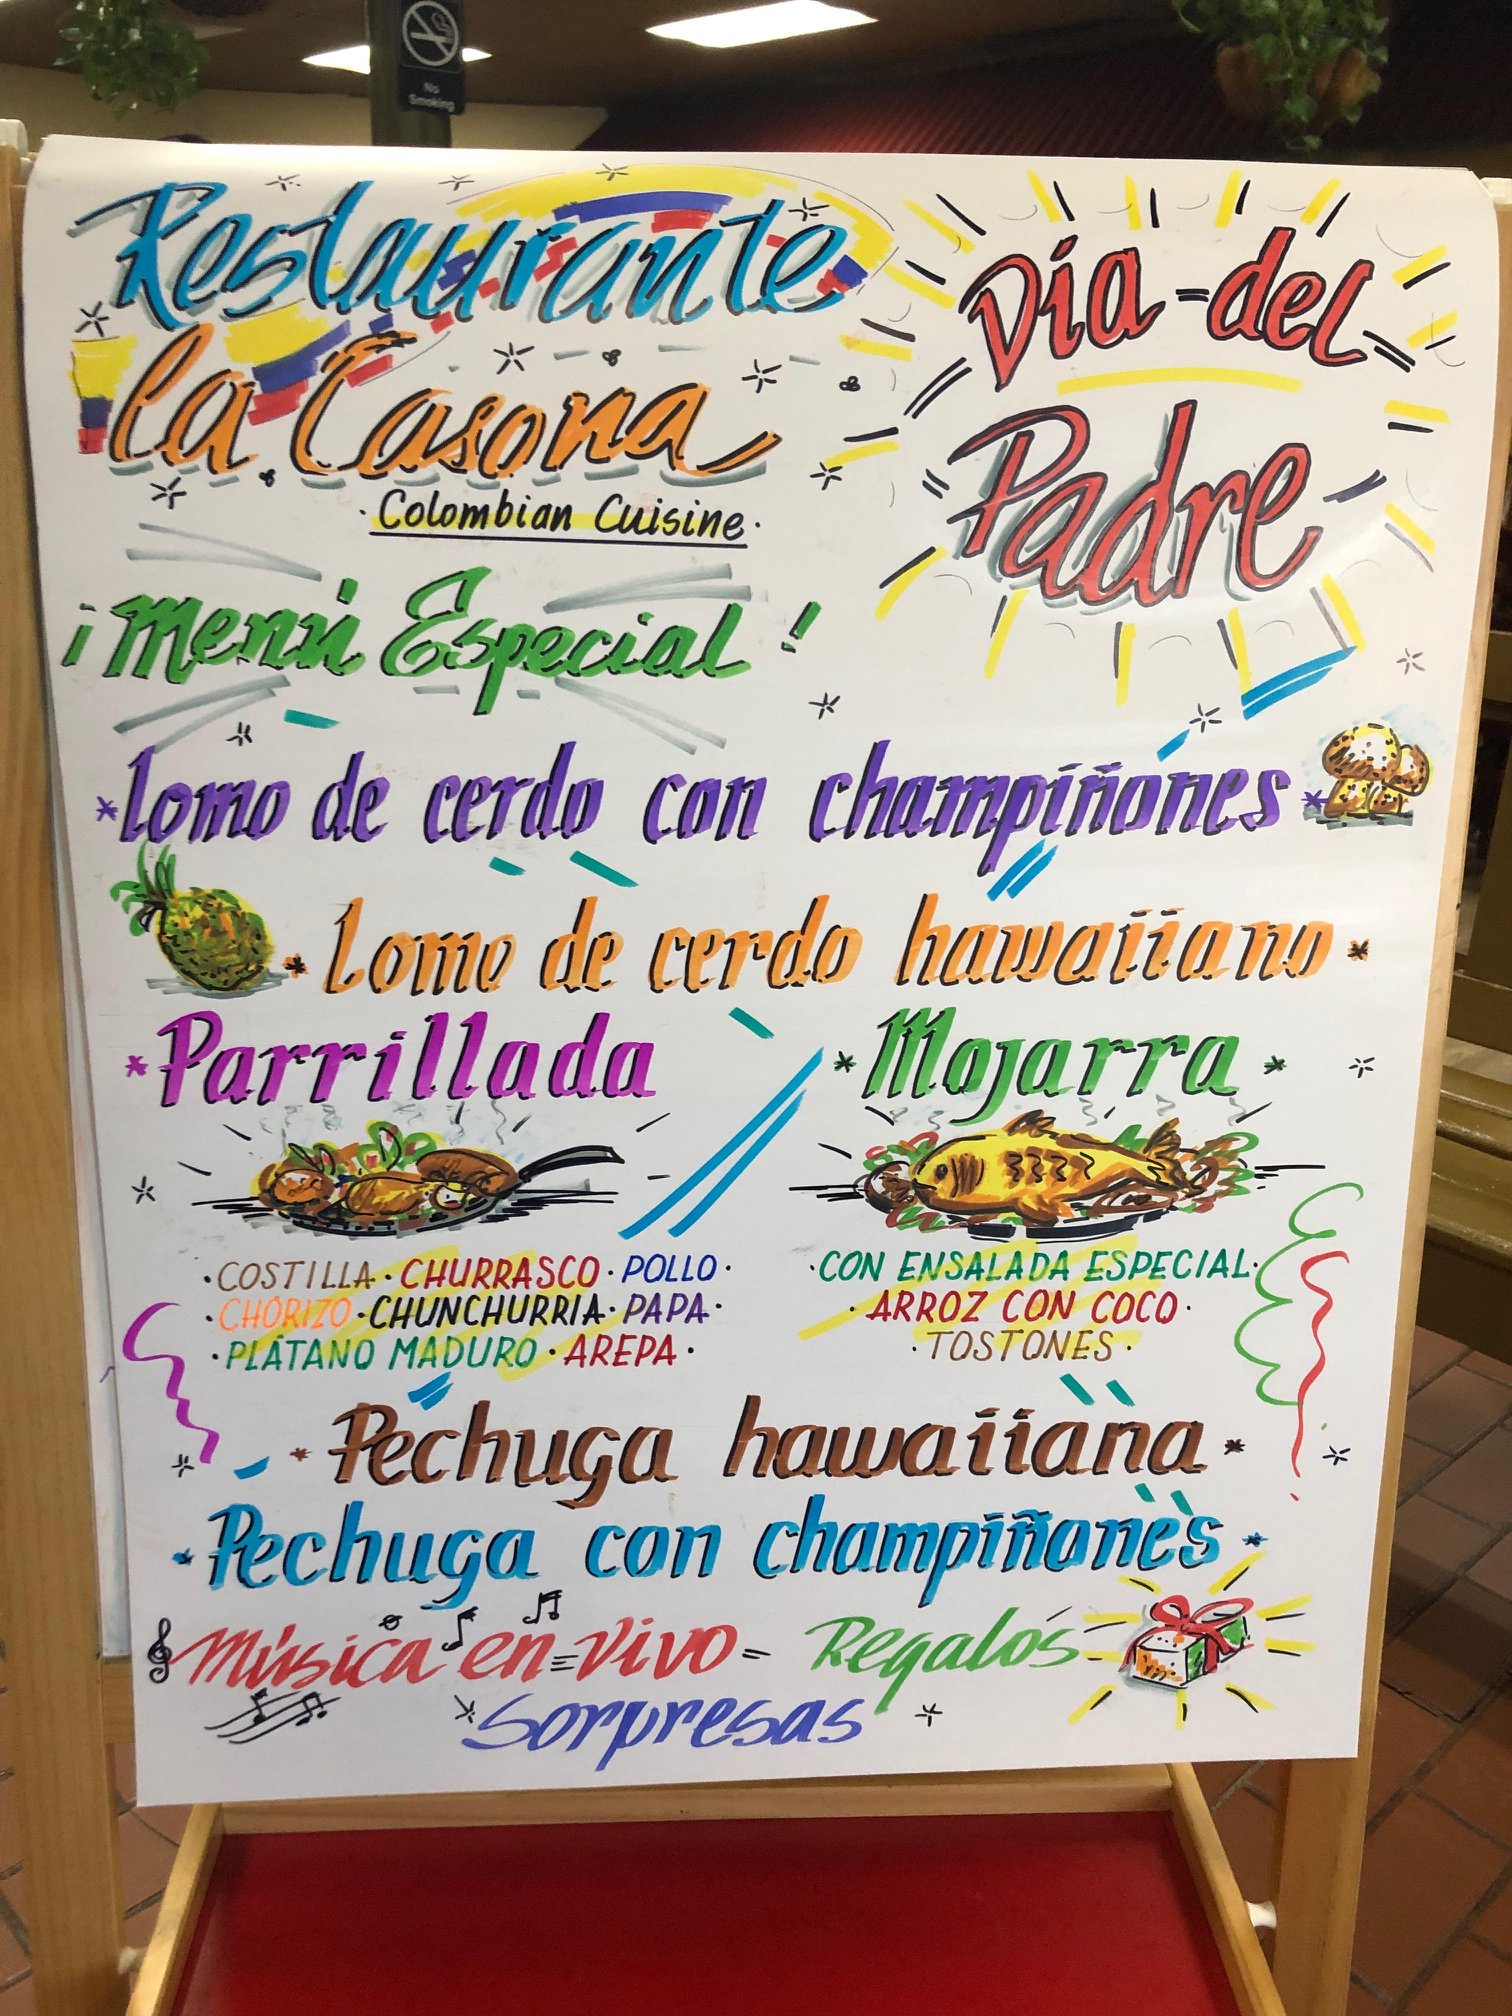 No
Smoking
Restaurante
la Casona
Colombian Cuisine
Día del
Padre
¡Menú Especial!
lomo de cerdo con champiñones
Lomo de cerdo hawaiiano
Parrillada
COSTILLA · CHURRASCO · POLLO
CHORIZO · CHUNCHURRIA · PAPA
PLÁTANO MADURO · AREPA
Mojarra
CON ENSALADA ESPECIAL
ARROZ CON COCO
TOSTONES
Pechuga hawaiiana
Pechuga con champiñones
Música en vivo Regalos
Sorpresas